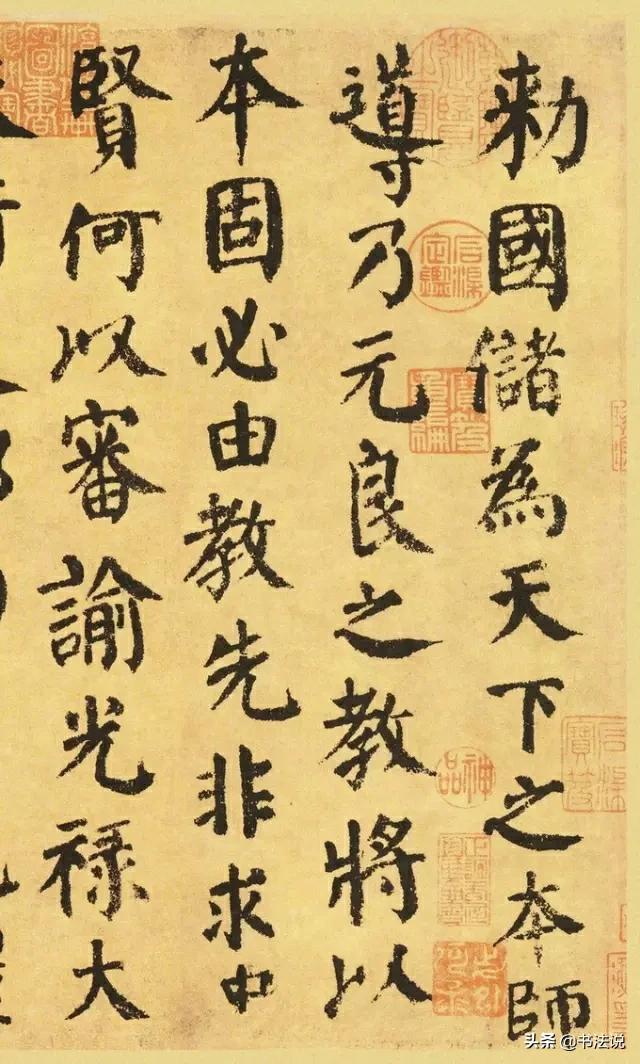 勑國儲為天下之本師
導乃元良之教將以
本固必由教先非求中
賢何以審諭光祿大
神品
头条 @书法说